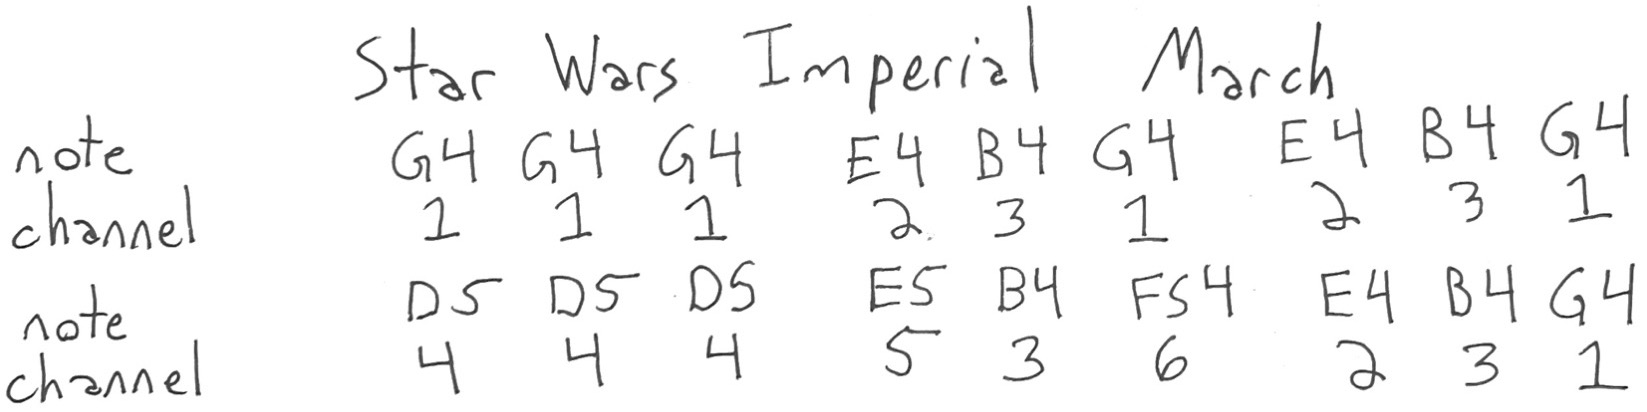 Star Wars Imperial March
note G4 G4 G4 E4 B4 G4 E4 B4 G4
channel 1 1 1 2 3 1 2 3 1
note D5 D5 D5 E5 B4 FS4 E4 B4 G4
channel 4 4 4 5 3 6 2 3 1